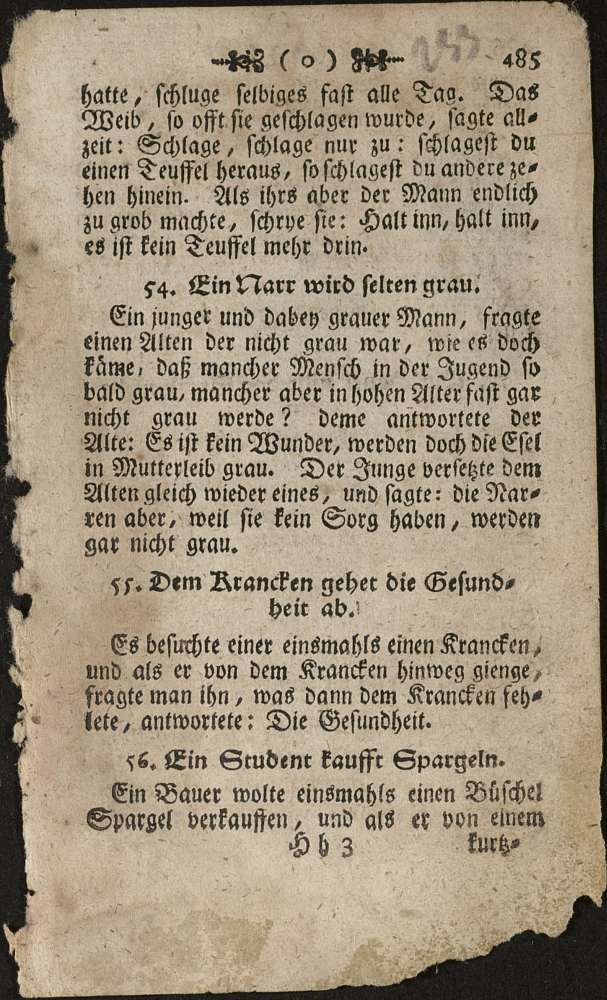 ( o ) 233 485
hatte, schluge selbiges fast alle Tag. Das
Weib, so offt sie geschlagen wurde, sagte all-
zeit: Schlage, schlage nur zu: schlagest du
einen Teuffel heraus, so schlagest du andere ze-
hen hinein. Als ihrs aber der Mann endlich
zu grob machte, schrye sie: Halt inn, halt inn,
es ist kein Teuffel mehr drin.
54. Ein Narr wird selten grau.
Ein junger und dabey grauer Mann, fragte
einen Alten der nicht grau war, wie es doch
käme, daß mancher Mensch in der Jugend so
bald grau, mancher aber in hohen Alter fast gar
nicht grau werde? deme antwortete der
Alte: Es ist kein Wunder, werden doch die Esel
in Mutterleib grau. Der Junge versetzte dem
Alten gleich wieder eines, und sagte: die Nar-
ren aber, weil sie kein Sorg haben, werden
gar nicht grau.
55. Dem Krancken gehet die Gesund-
heit ab.
Es besuchte einer einsmahls einen Krancken,
und als er von dem Krancken hinweg gienge,
fragte man ihn, was dann dem Krancken feh-
lete, antwortete: Die Gesundheit.
56. Ein Student kaufft Spargeln.
Ein Bauer wolte einsmahls einen Büschel
Spargel verkauffen, und als er von einem
Hh 3 kurtz-